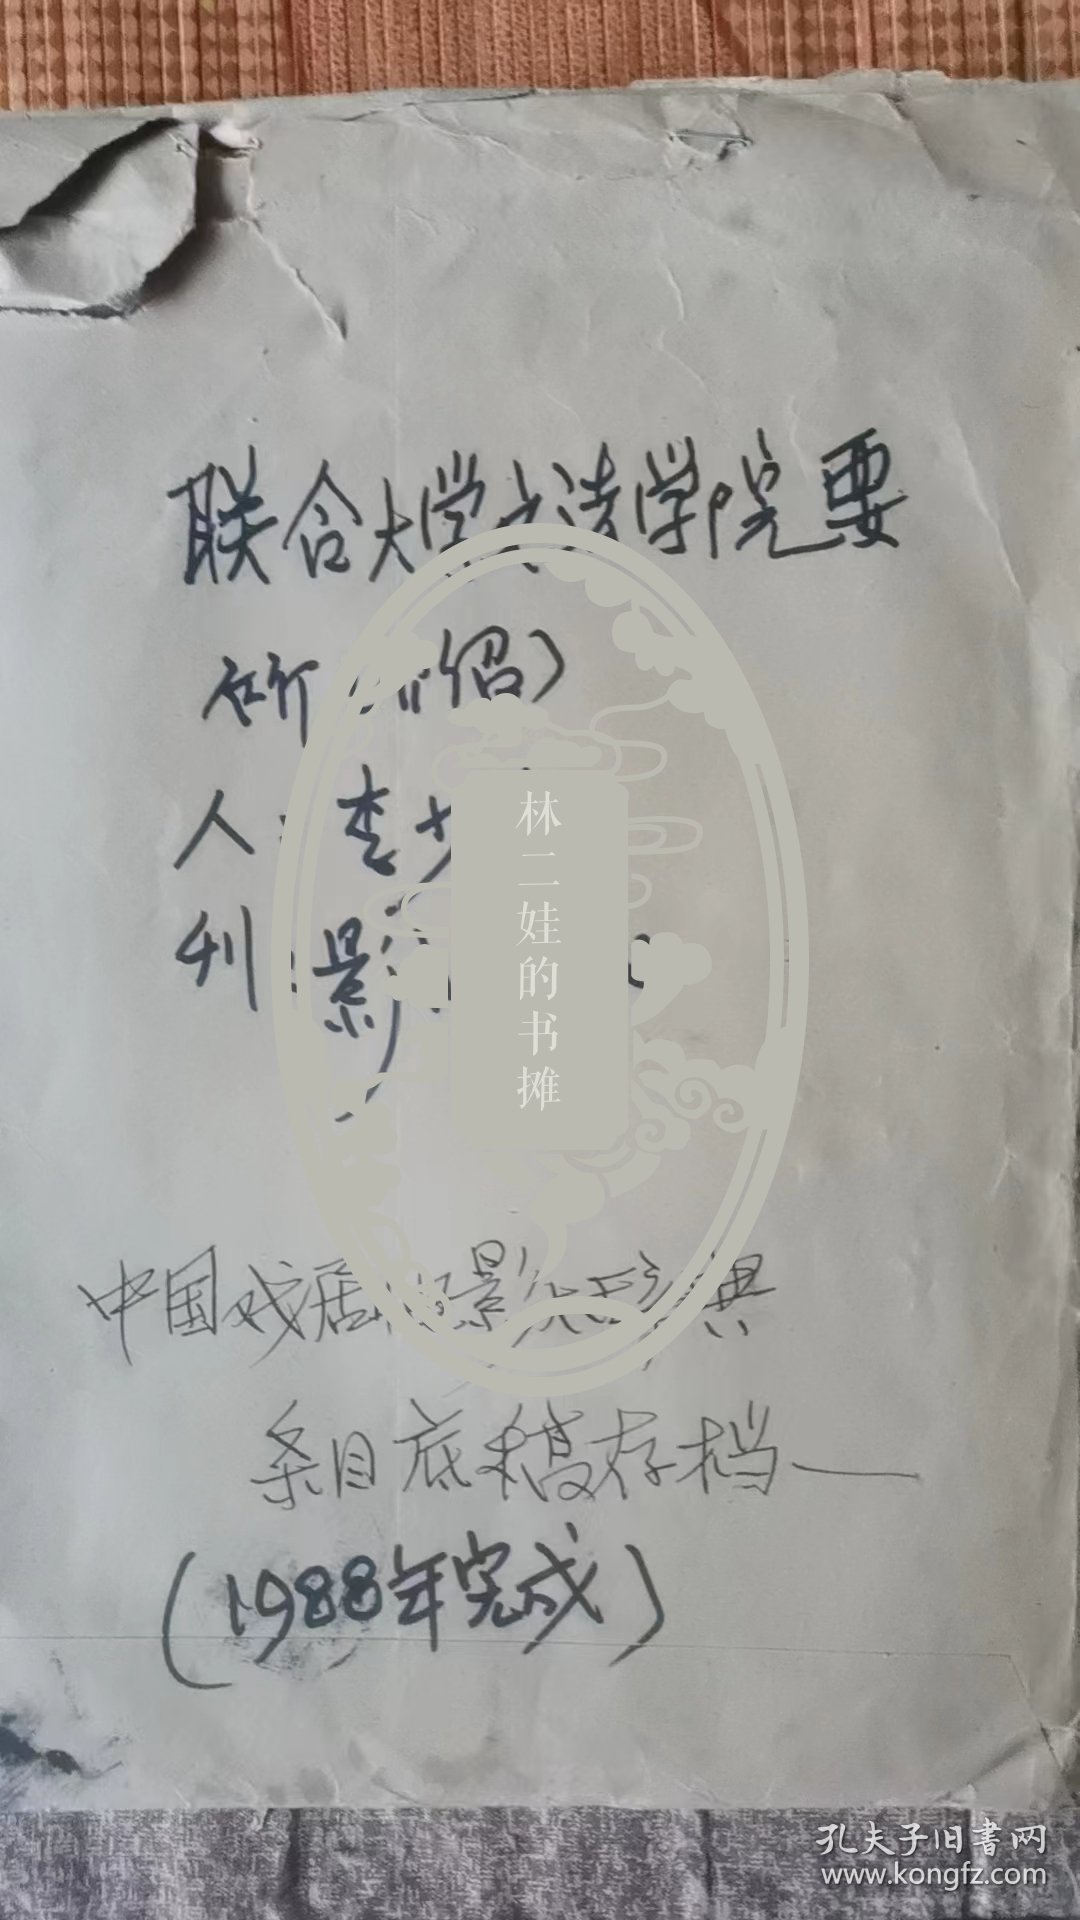 联合大学文法学院要
所（介绍）
人：李少
刊：影
中国戏剧电影辞典
条目底稿存档——
（1988年完成）
林二娃的书摊
孔夫子旧书网
www.kongfz.com